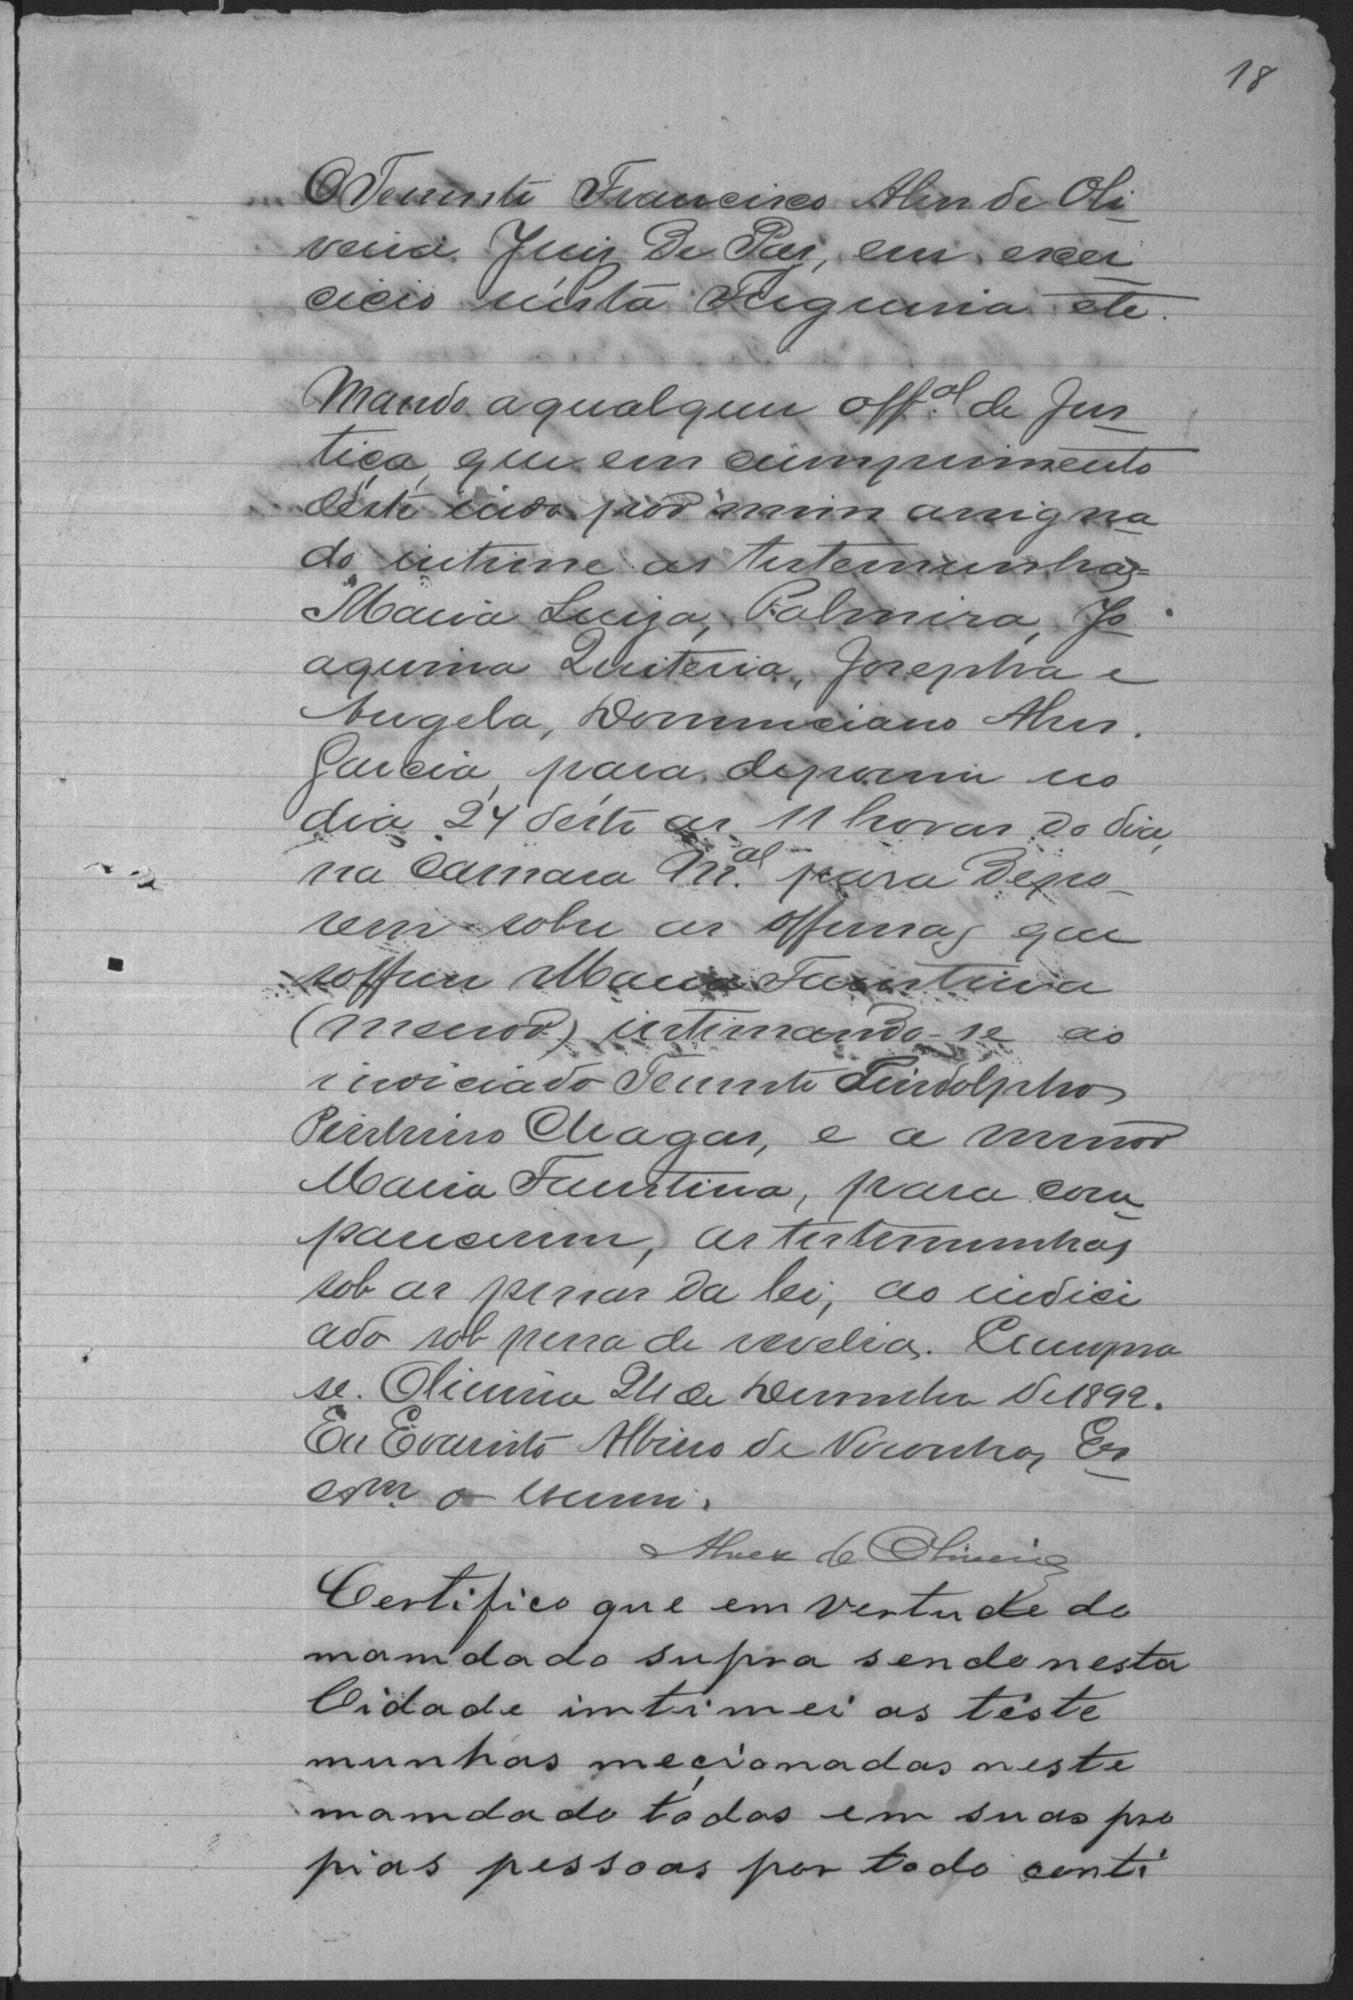 18
O Tenente Francisco Alves de Oli
veira Juiz de Paz, em exer
cicio nésta Freguesia etc.
Mando a qualquer off.al de Jus
tiça, que em cumprimento
déste indo por mim assigna
do intime as testemunhas=
Maria Luiza, Palmira, Jo
aquina Quiteria, Josepha e
Angela, Domiciano Alves
Garcia, para deporem no
dia 24 déste as 11 horas do dia,
na Camara M.al para depo-
rem sobre as offensas que
soffreu Maria Faustina
(menor) intimando-se ao
indiciado Tenente Lindolpho
Pinheiro Chagas, e a menor
Maria Faustina, para com
parecerem, as testemunhas
sob as penas da lei, ao indici
ado sob pena de revelia. Cumpra
se. Oliveira 21 de Dezembro de 1892.
Eu Evaristo Albino de Noronha, Es
cr.m o escrevi.
Alves de Oliveira
Certifico que em vertude do
mamdado supra sendo nesta
Cidade imtimei as téste
munhas mecionadas neste
mamdado todas em suas pro
pias pessoas por todo conti